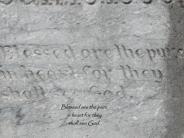 Blessed are the pure
in heart for they
shall see God
Blessed are the pure
in heart for they
shall see God.